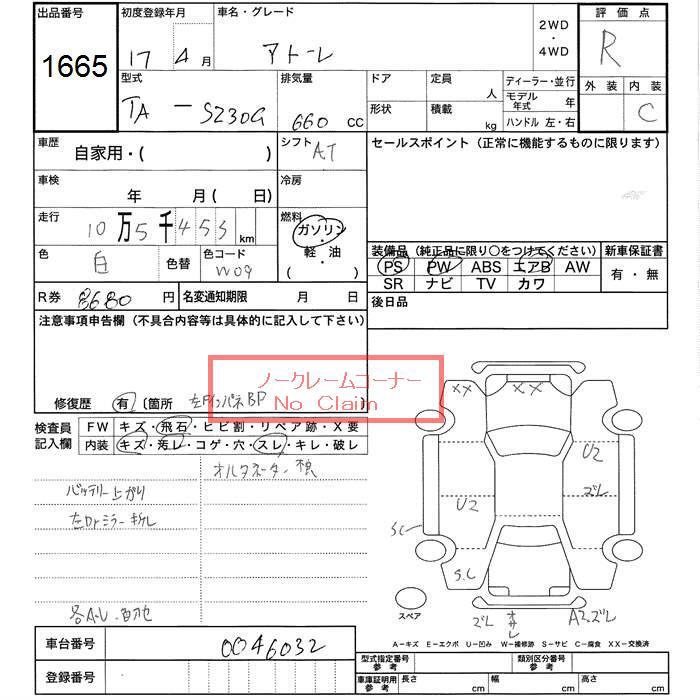 出品番号 初度登録年月 車名・グレード 2WD・4WD 評価点
1665 17 4月 アトレー R
型式 排気量 ドア 定員 人 ディーラー・並行 外装 内装
TA-S230G 660 CC 形状 積載 kg モデル年式 年 ハンドル 左・右 C
車歴 自家用・( ) シフト AT セールスポイント (正常に機能するものに限ります)
車検 年 月( 日) 冷房
走行 10万5千453 km 燃料 ガソリン・軽・油 ( )
色 白 色替 色コード W09
装備品 (純正品に限り○をつけてください) 新車保証書
PS PW ABS エアB AW 有・無
SR ナビ TV カワ
R券 8680 円 名変通知期限 月 日 後日品
注意事項申告欄 (不具合内容等は具体的に記入して下さい)
ノークレームコーナー
No Claim
修復歴 有 〔箇所 左Fインパネ BP 〕
検査員記入欄 FW キズ・飛石・ヒビ割・リペア跡・X要
内装 キズ・汚レ・コゲ・穴・スレ・キレ・破レ
オルタネーター
バッテリー上がり
左Drミラー
XX XX
U2
ズレ
U2
S.C
S.C
スペア
ズレ A2.ズレ
A-キズ E-エクボ U-凹み W-補修跡 S-サビ C-腐食 XX-交換済
車台番号 0046032 型式指定番号 参考 類別区分番号 参考
登録番号 車庫証明用 参考 長さ cm 幅 cm 高さ cm